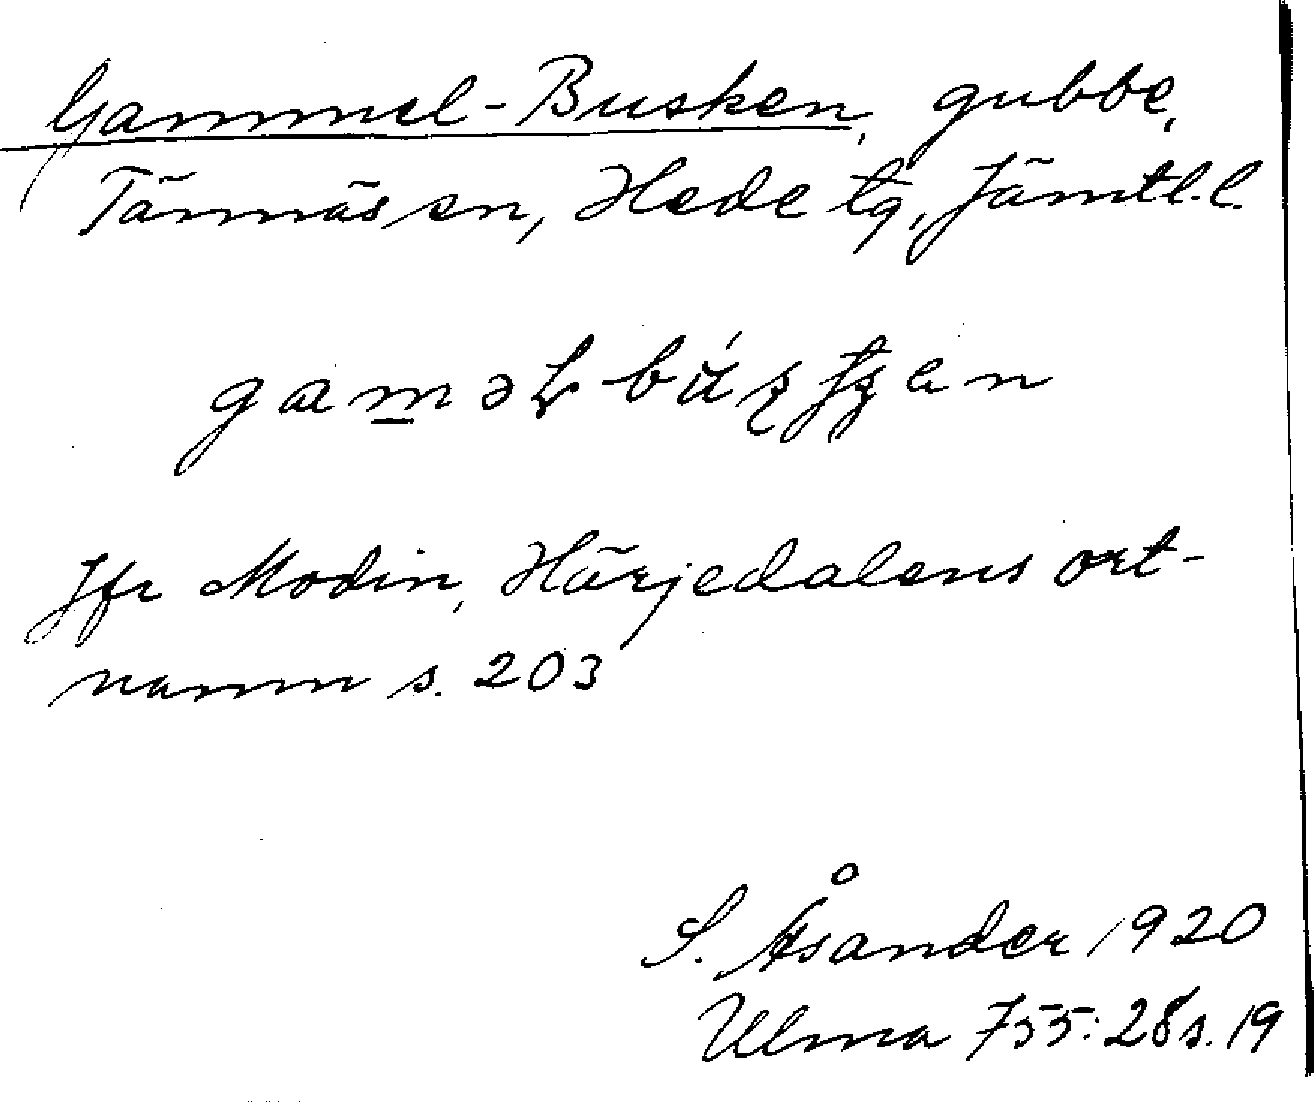 Gammel-Busken, gubbe,
Tännäs sn, Hede tg, Jämtl.l.
Jfr Modin, Härjedalens ort-
namn s. 203
S. Åsander 1920
Ulma 755:28 s. 19